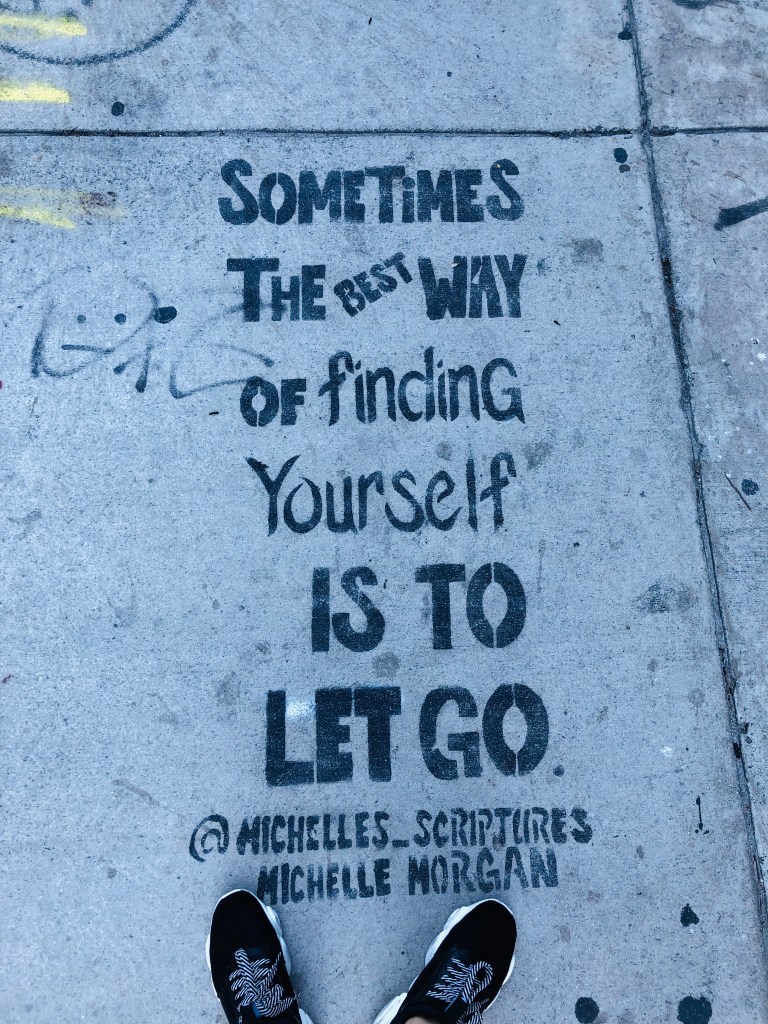 SOMETiMES
THE BEST WAY
OF finding
Yourself
IS TO
LET GO.
@MICHELLES_SCRIPTURES
MICHELLE MORGAN